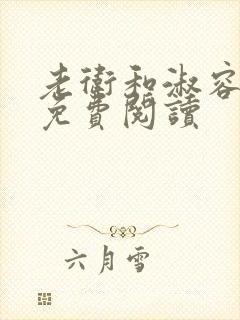 老衛和淑容
免費閱讀
六月雪